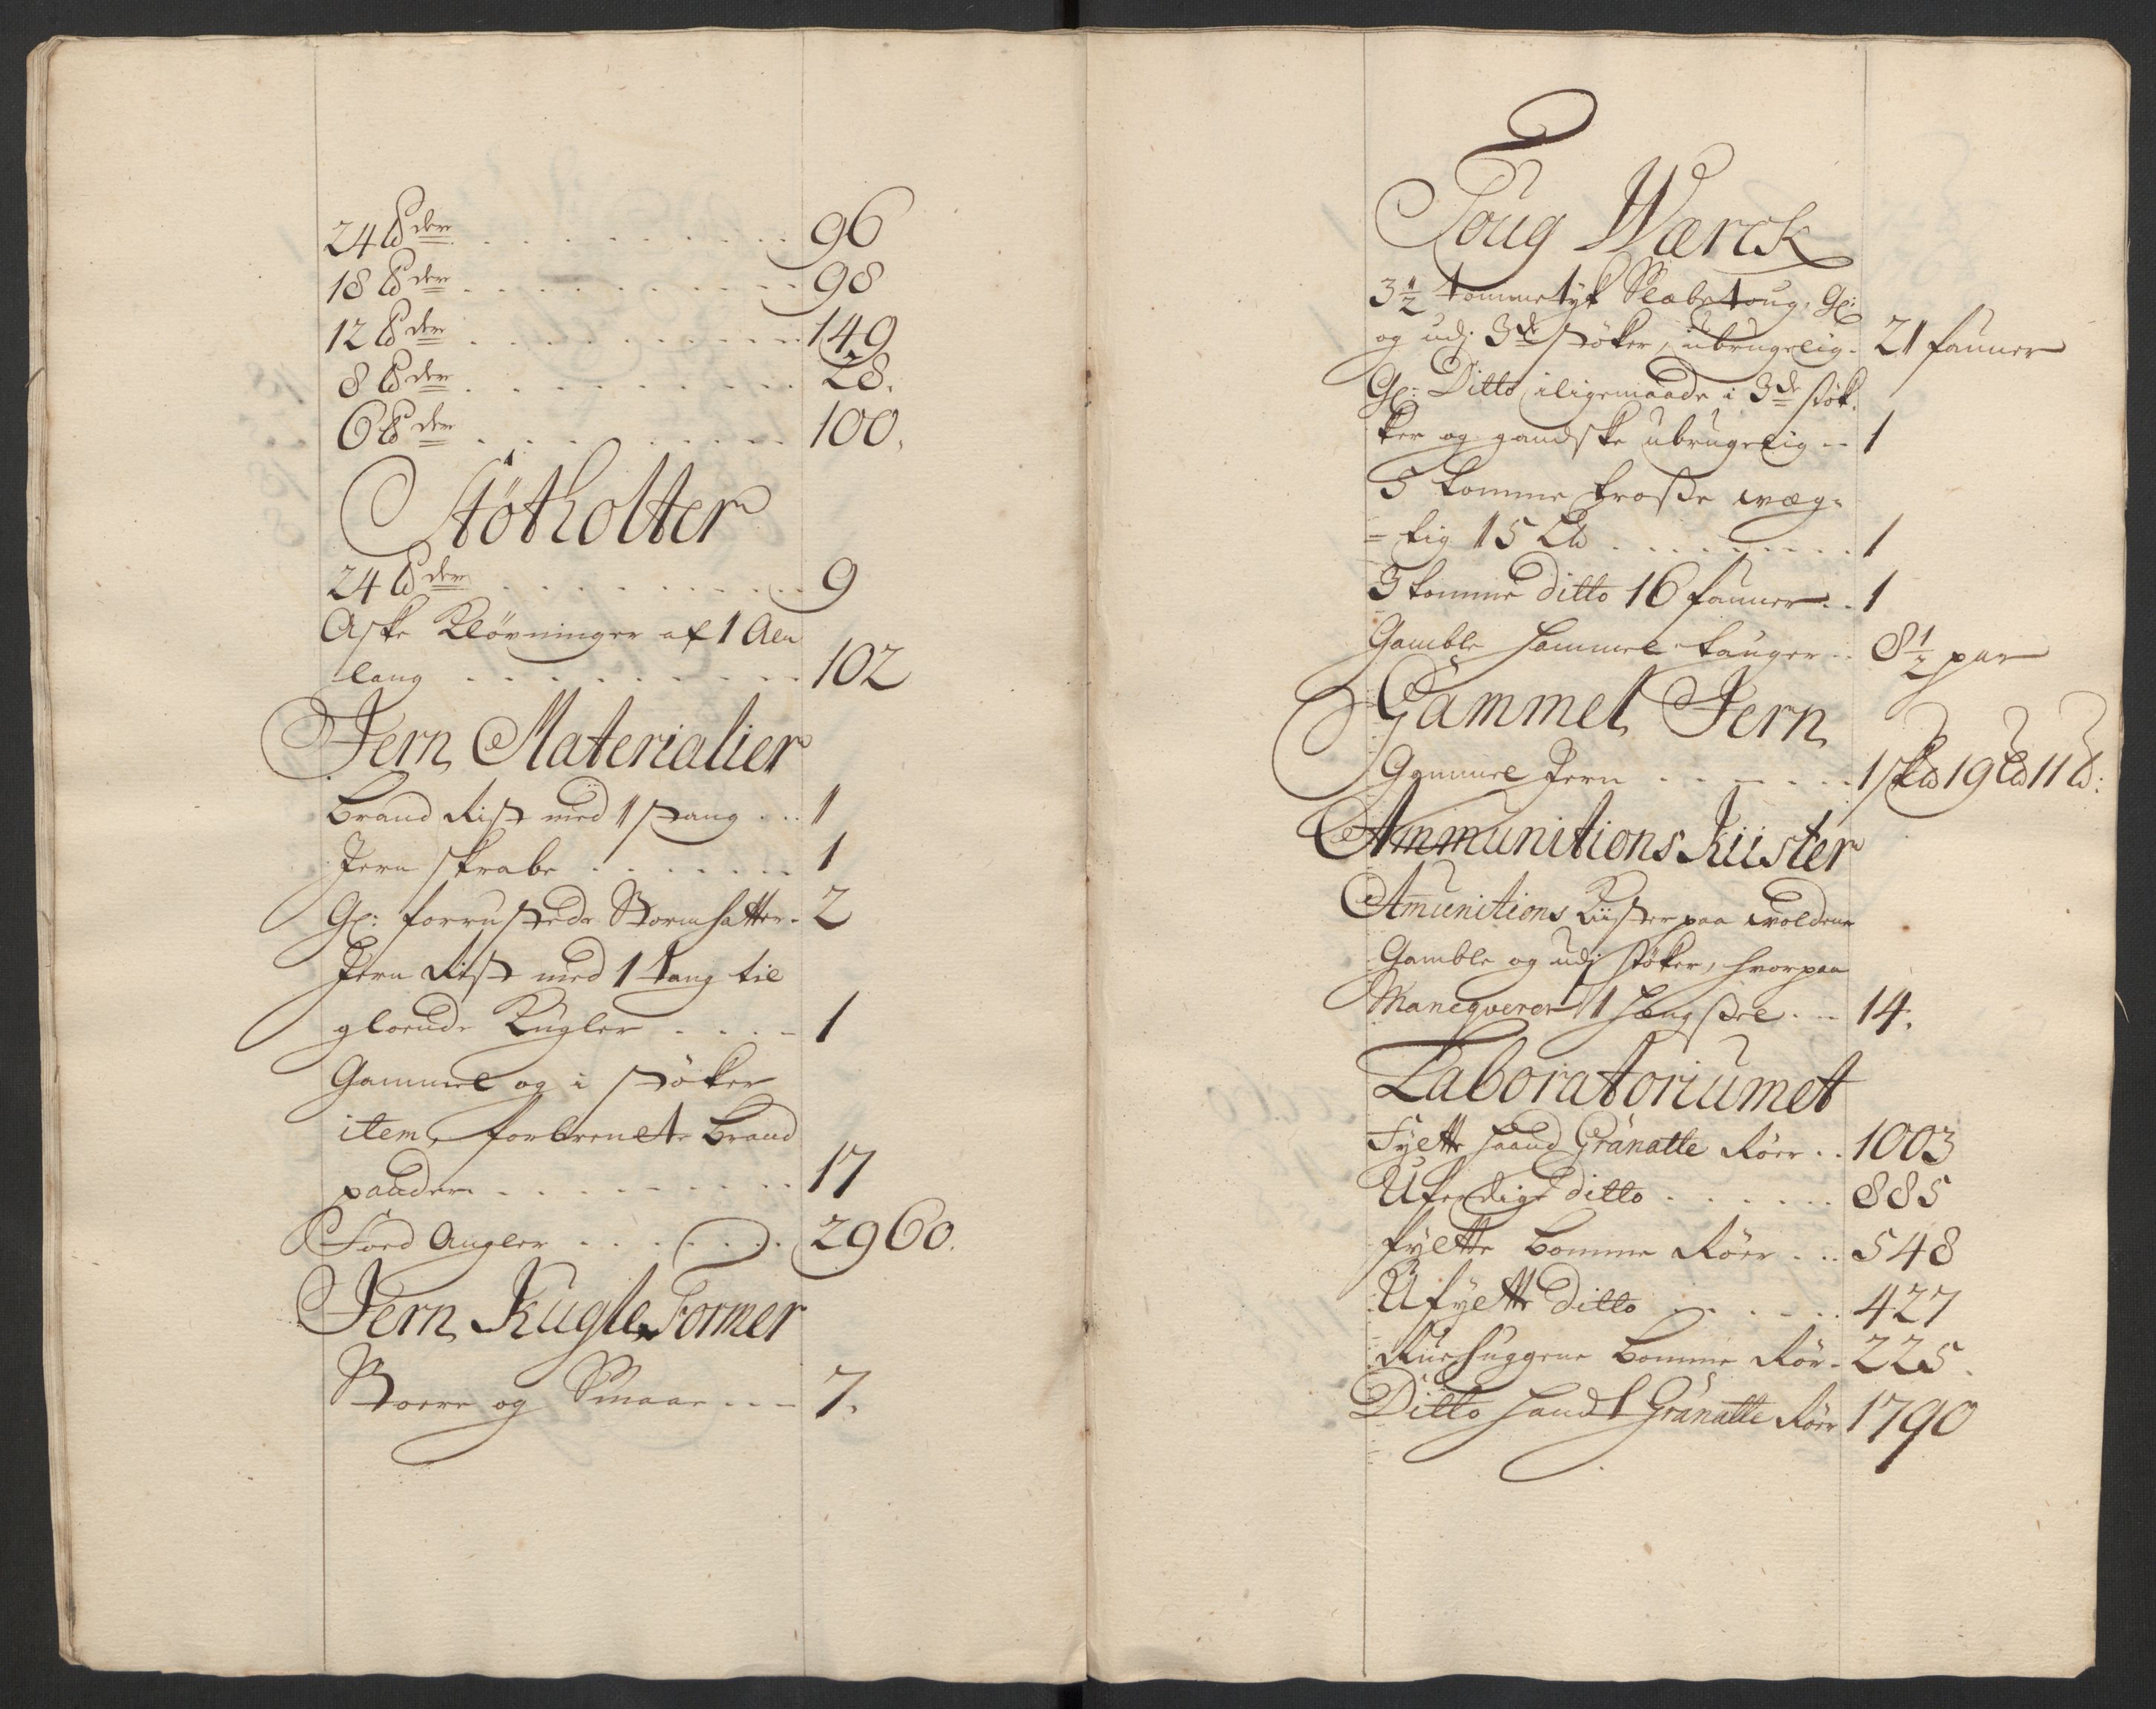 24 ℔der . . . . . . . . . . 96
18 ℔der . . . . . . . . . . 98
12 ℔der . . . . . . . . . . 149
8 ℔der . . . . . . . . . . 28.
6 ℔der . . . . . . . . . . 100.
Stötholter
24 ℔der . . . . . . . . . . 9
Aske Kløvninger af 1 Alen
lang . . . . . . . . . . 102
Jern Materialier
Brand Rist med 1 stang . . . 1
Jern skrabe . . . . . . . 1
Gl: forrustede Stormhatter - 2
Jern Rist med 1 tang til
gloende Kugler . . . - 1
Gammel og i støker
item, forbrendte Brand
pander . . . . . . . . . 17
Foed Angler . . . . . . . 2960.
Jern Kugle Former
Stoere og Smaae . . - 7.
Toug Wærck
3½ tomme tyk Slæbetoug, Gl:
og udj 3de støker, ubrugelig - 21 fauner
Gl: Ditto iligemaade i 3de støk-
ker og gandske ubrugelig - 1
5 tomme troße wæg-
=tig 15 L℔ . . . . . . . . 1
3 tomme ditto 16 fauner . . 1
Gamble hammel touger . . 8½ par
Gammel Jern
Gammel Jern . . . . . . 1 sk℔ 19 L℔ 11 ℔:
Ammunitions Kiister
Amunitions Kiister paa woldene
Gamble og udj støker, hvorpaa
Manqverer 1 Hengsel . . - 14.
Laboratoriumet
Fyelte haand Granatte Röer . . 1003
Uferdige ditto . . . . . . 885
fyelte Bomme Röer . . . 548
Ufyelte ditto . . . . . . 427
Ruehuggene Bomme Rör - 225.
Ditto Hand Granatte Röer 1790